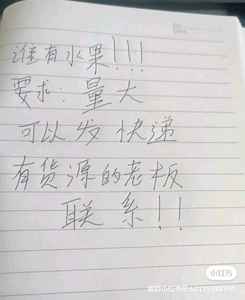 谁有水果!!!
要求:量大
可以发快递
有货源的老板
联系!!
小红书